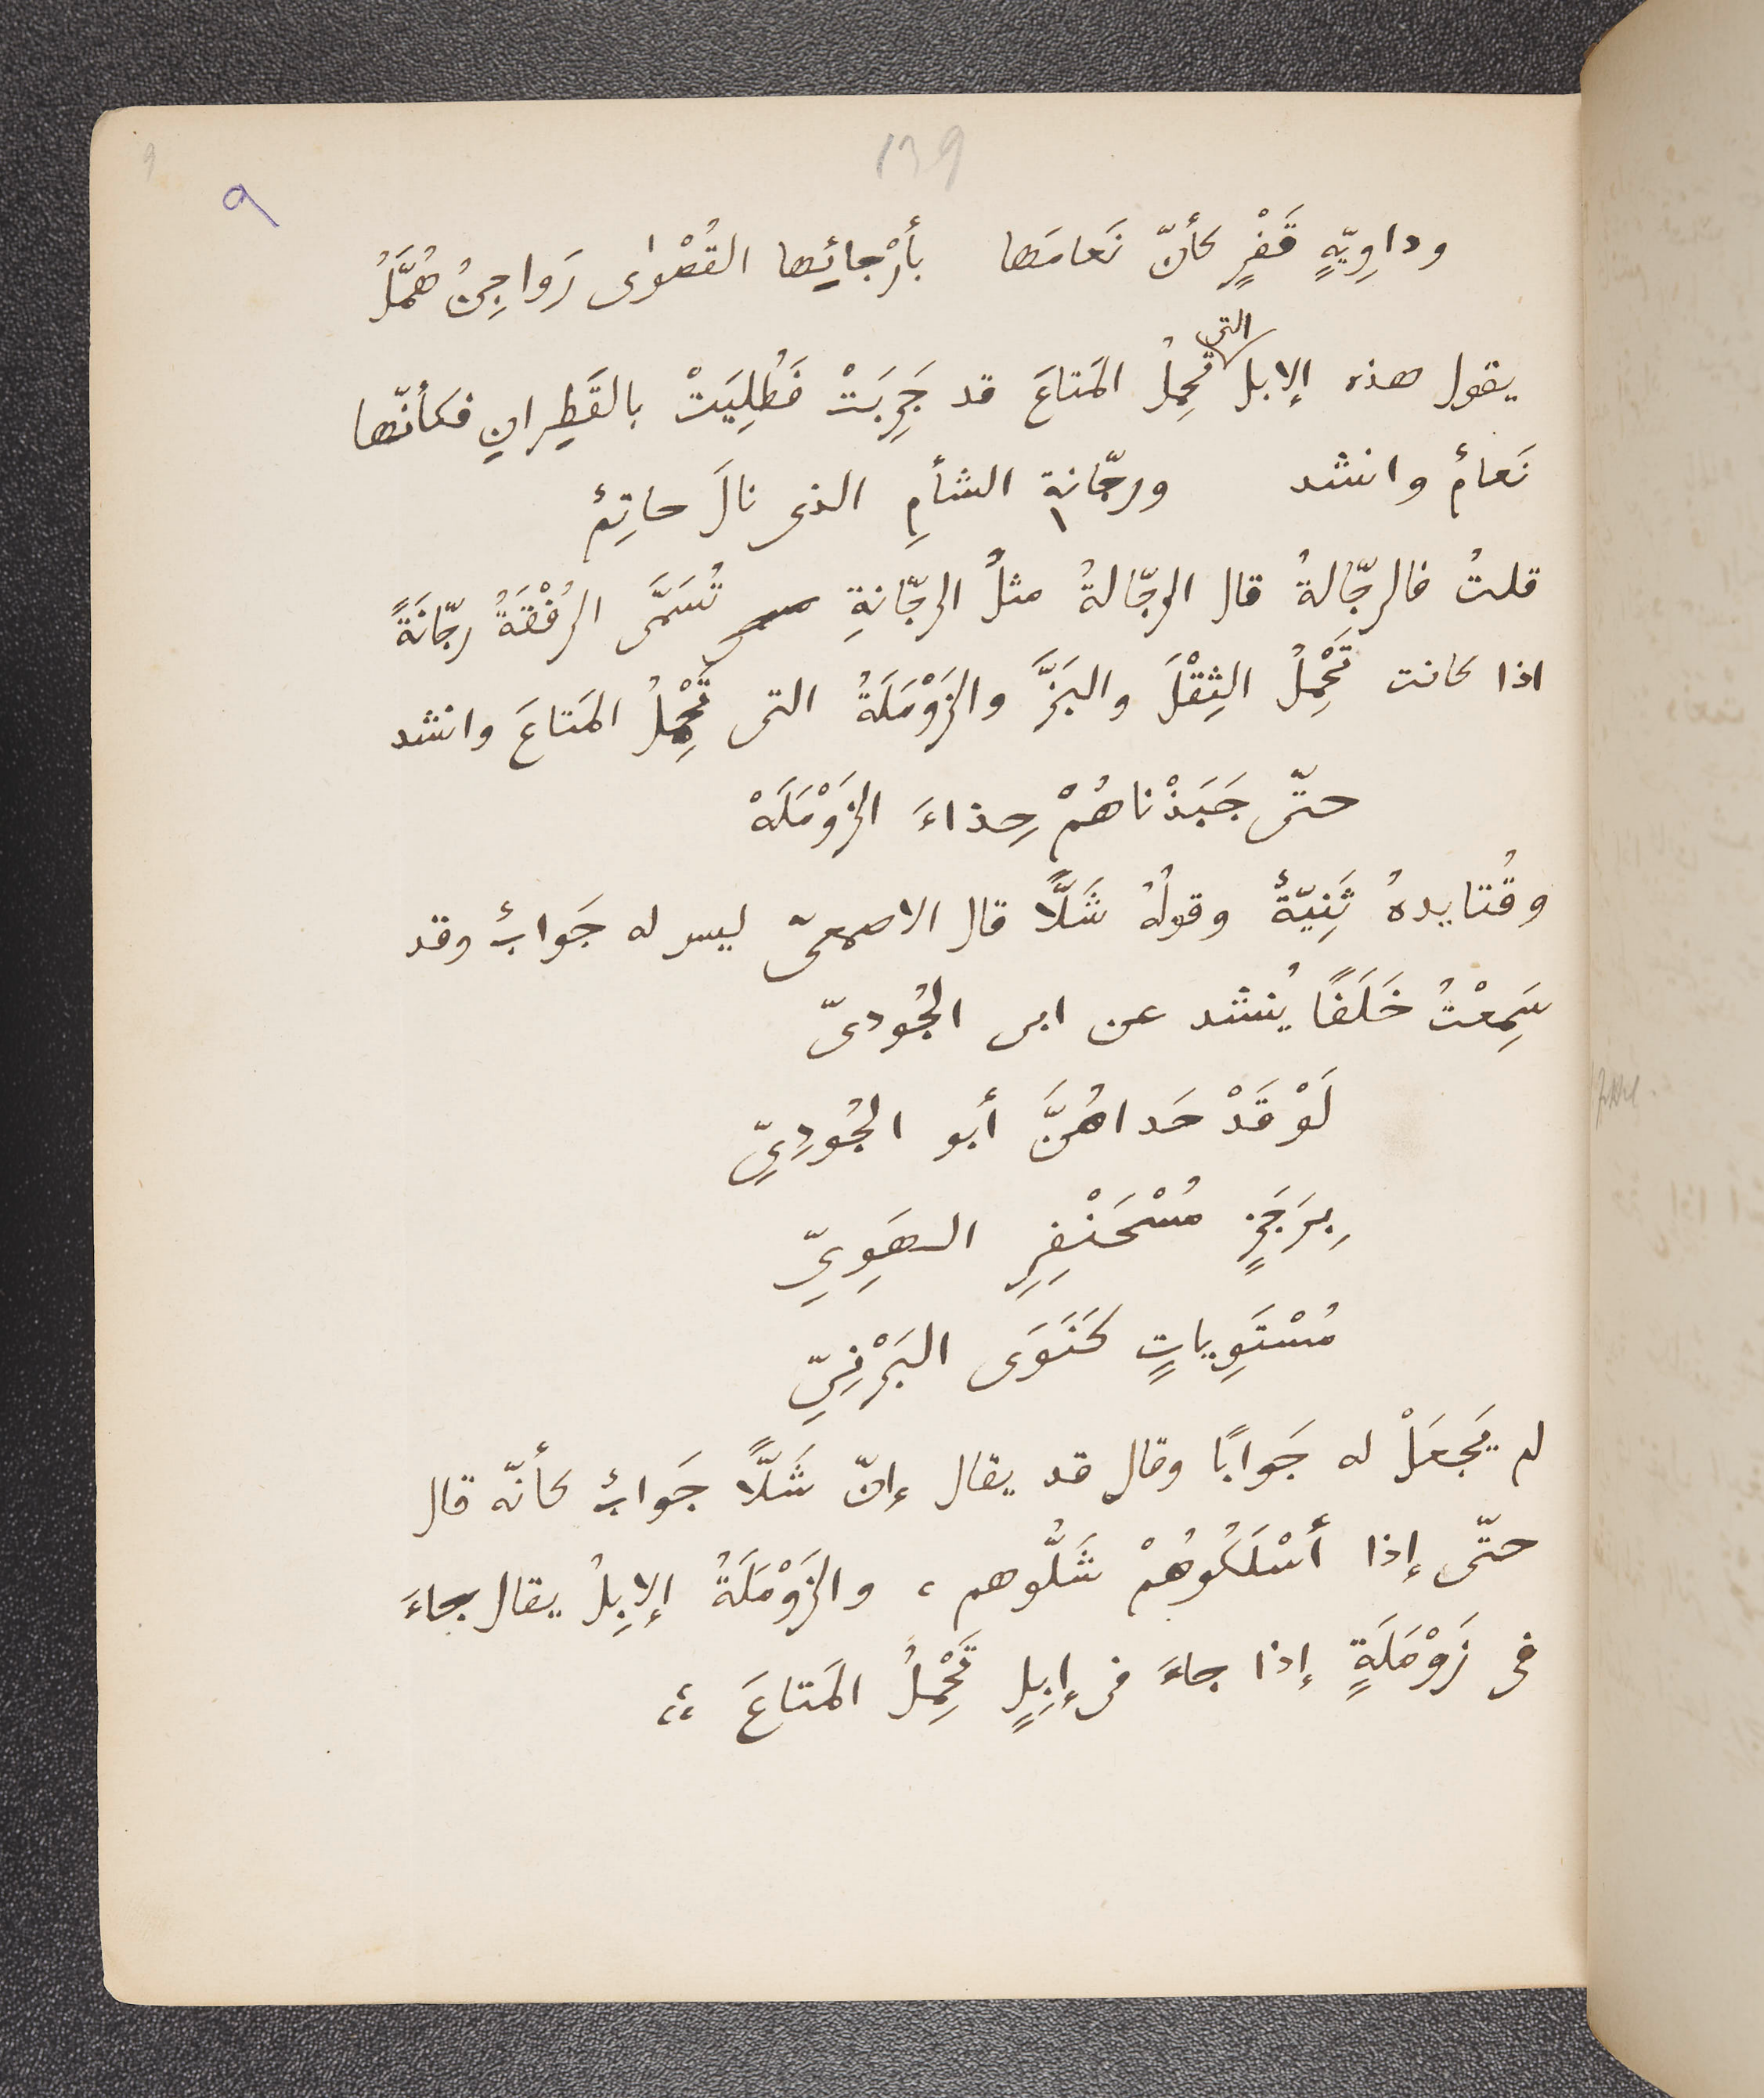 139
٩
٩
وداوِيّةٍ قَفْرٍ كأنّ نَعامَها بأَرْجائِها القُصْوٰى رَواجِنُ هُمَّلُ
يقول هذه الإبل التى تَحمِلُ المَتاعَ قد جَرِبَتْ فَطُلِيَتْ بالقَطِرانِ فكأنّها
نَعامٌ وانشد ورجّانة الشأمِ الذى نالَ حاتِمٌ
قلتُ فالرجّالةُ قال الرجّالةُ مثلُ الرجّانةِ تُسَمَّى الرُفْقَةُ رجّانَةً
اذا كانت تَحْمِلُ الثِقْلَ والبَزَّ والزَوْمَلَةُ التى تَحْمِلُ المَتاعَ وانشد
حتّى جَبَذْناهُمْ حِذاءَ الزَوْمَلَهْ
وقُتايدهُ ثَنِيّةٌ وقولُهُ شَلًّا قال الاصمعىّ ليس له جَوابٌ وقد
سَمِعْتُ خَلَفًا يُنشد عن ابى الجُودىّ
لَوْ قَدْ حَداهُنَّ أبو الجُودِيِّ
بِرَجَزٍ مُسْحَنْفِرِ الهَوِيِّ
مُسْتَوِياتٍ كَنَوَى البَرْنِيِّ
لم يَجعَلْ له جَوابًا وقال قد يقال إنّ شَلًّا جَوابٌ كأنّه قال
حتّى إذا أَسْلَكُوهُمْ شَلُّوهم، والزَوْمَلَةُ الإبِلُ يقال جاءَ
فى زَوْمَلَةٍ إذا جاءَ فى إبِلٍ تَحْمِلُ المَتاعَ ؛؛